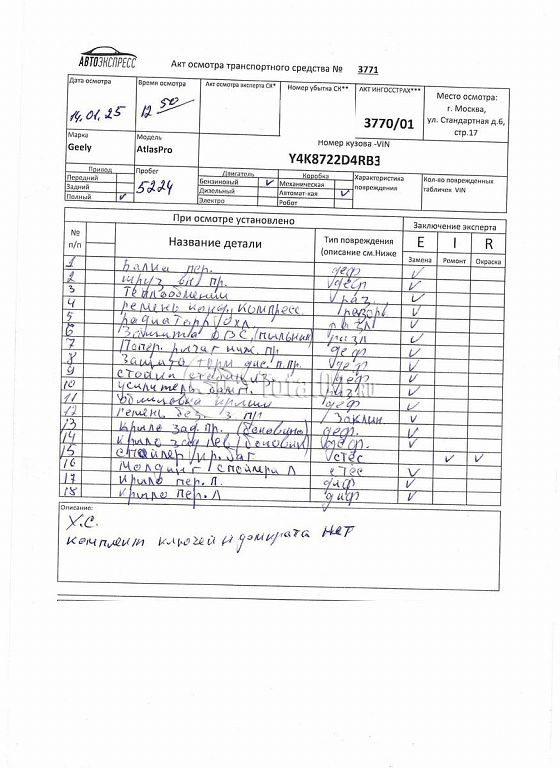 АВТОЭКСПРЕСС
Акт осмотра транспортного средства № 3771
Дата осмотра
14.01.25
Время осмотра
12 50
Акт осмотра эксперта СК*
Номер убытка СК**
АКТ ИНГОССТРАХ***
3770/01
Место осмотра:
г. Москва,
ул. Стандартная д.6,
стр.17
Марка
Geely
Модель
AtlasPro
Номер кузова -VIN
Y4K8722D4RB3
Привод
Передний
Задний
Полный ✓
Пробег
5224
Двигатель
Бензиновый ✓
Дизельный
Электро
Коробка
Механическая
Автомат-кая ✓
Робот
Характеристика
повреждения
Кол-во поврежденных
табличек VIN
При осмотре установлено
Заключение эксперта
№
п/п
Название детали
Тип повреждения
(описание см.Ниже
E I R
Замена Ремонт Окраска
1 Балка пер. деф ✓
2 пр. ✓
3 раз ✓
4 ремень компресс. ✓
5 радиатор охл. разл ✓
6 Защита ДВС (пыльник) разл ✓
7 Попер. рычаг ниж. пр деф ✓
8 Защита торм дис. п.пр. деф ✓
9 деф ✓
10 усилитель раз ✓
11 деф ✓
12 ремень без. з пр Заклин. ✓
13 крыло зад. пр. (боковина) деф. ✓
14 крыло зад лев (боковин) деф. ✓
15 спойлер кр. баг стес ✓ ✓
16 молдинг спойлера л стес ✓
17 крыло пер. п. деф ✓
18 крыло пер. л деф ✓
Описание:
Х.С.
комплект ключей и домкрата нет